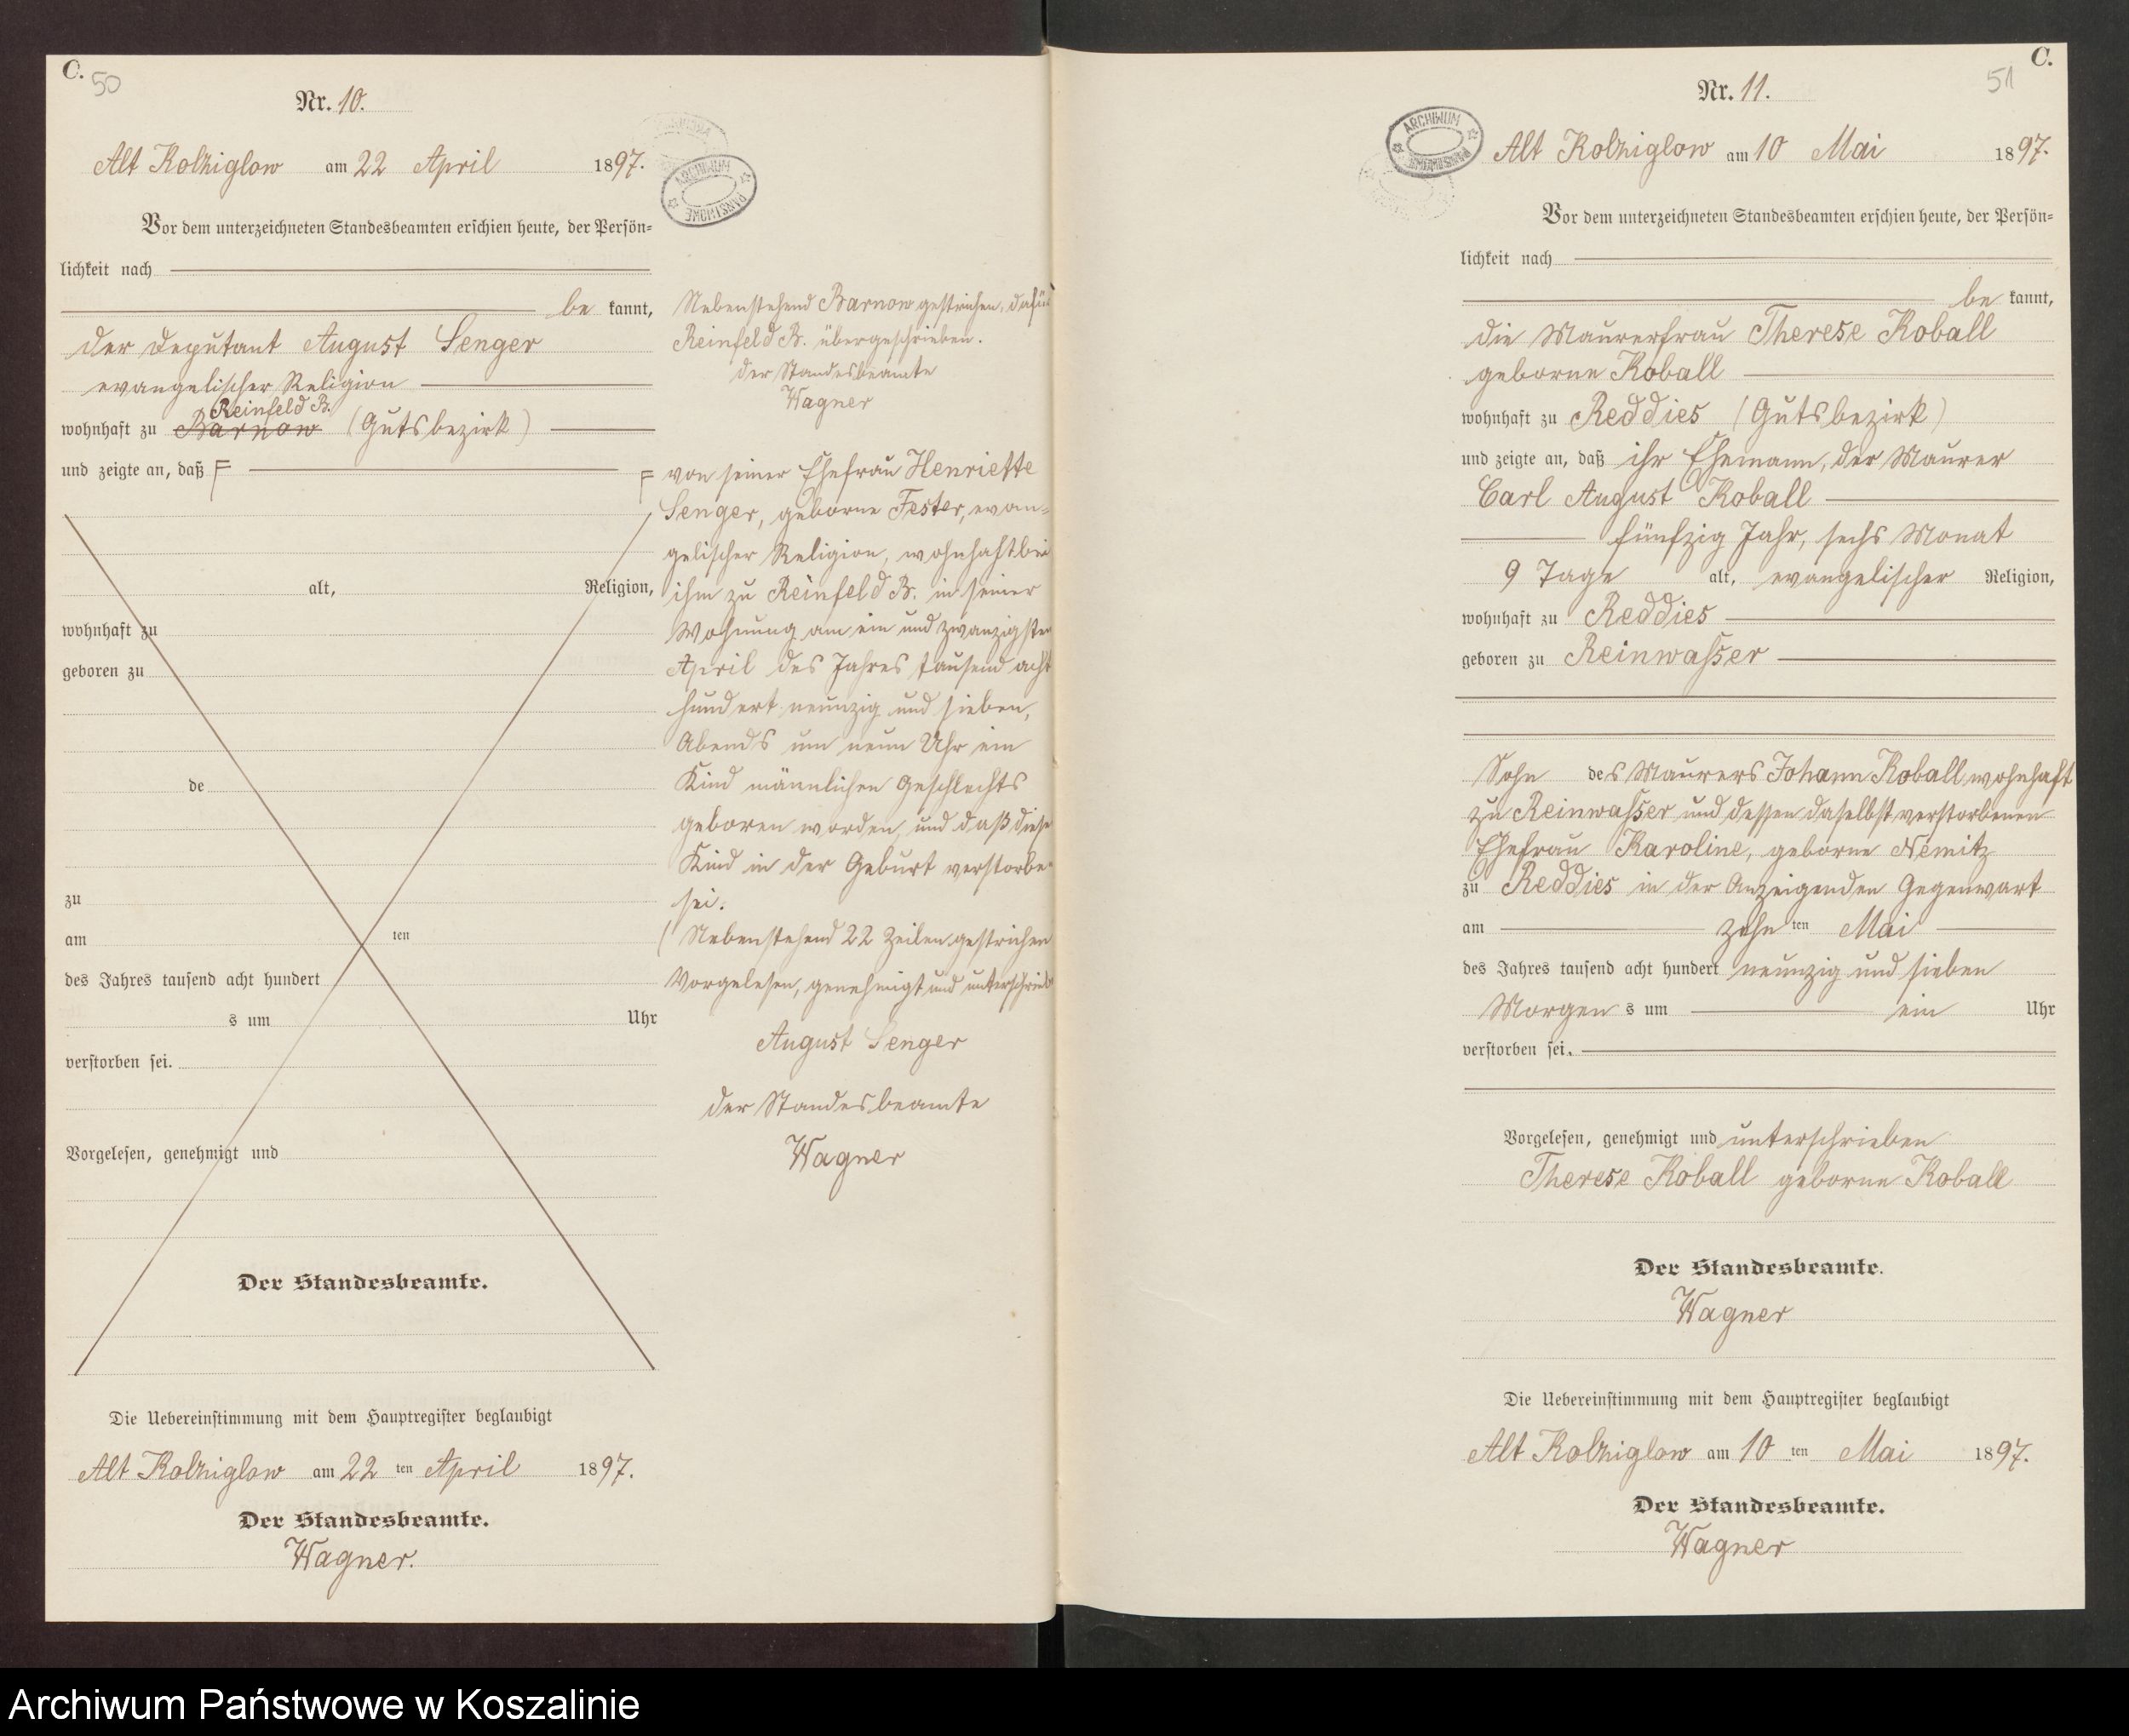 C.
50
Nr. 10.
Alt Kolziglow am 22 April 1897.
Vor dem unterzeichneten Standesbeamten erschien heute, der Persön-
lichkeit nach
be kannt,
der Deputant August Senger
evangelischer Religion
Reinfeld B.
wohnhaft zu Barnow (Gutsbezirk)
und zeigte an, daß F
alt, Religion,
wohnhaft zu
geboren zu
de
zu
am ten
des Jahres tausend acht hundert
s um Uhr
verstorben sei.
Vorgelesen, genehmigt und
Der Standesbeamte.
Die Uebereinstimmung mit dem Hauptregister beglaubigt
Alt Kolziglow am 22 ten April 1897.
Der Standesbeamte.
Wagner.
ARCHIWUM PAŃSTWOWE
Nebenstehend Barnow gestrichen, dafür
Reinfeld B. übergeschrieben.
Der Standesbeamte
Wagner
F von seiner Ehefrau Henriette
Senger, geborne Fester, evan-
gelischer Religion, wohnhaft bei
ihm zu Reinfeld B. in seiner
Wohnung am ein und zwanzigsten
April des Jahres tausend acht
hundert neunzig und sieben,
Abends um neun Uhr ein
Kind männlichen Geschlechts
geboren worden, und daß dieses
Kind in der Geburt verstorben
sei.
(Nebenstehend 22 Zeilen gestrichen
Vorgelesen, genehmigt und unterschrieben
August Senger
der Standesbeamte
Wagner
C.
51
Nr. 11.
ARCHIWUM PAŃSTWOWE
Alt Kolziglow am 10 Mai 1897.
Vor dem unterzeichneten Standesbeamten erschien heute, der Persön-
lichkeit nach
be kannt,
die Maurerfrau Therese Koball
geborne Koball
wohnhaft zu Reddies (Gutsbezirk)
und zeigte an, daß ihr Ehemann, der Maurer
Carl August Koball
fünfzig Jahr, sechs Monat
9 Tage alt, evangelischer Religion,
wohnhaft zu Reddies
geboren zu Reinwasser
Sohn des Maurers Johann Koball wohnhaft
zu Reinwasser und dessen daselbst verstorbenen
Ehefrau Karoline, geborne Nemitz
zu Reddies in der Anzeigenden Gegenwart
am zehn ten Mai
des Jahres tausend acht hundert neunzig und sieben
Morgen s um ein Uhr
verstorben sei.
Vorgelesen, genehmigt und unterschrieben
Therese Koball geborne Koball
Der Standesbeamte.
Wagner
Die Uebereinstimmung mit dem Hauptregister beglaubigt
Alt Kolziglow am 10 ten Mai 1897.
Der Standesbeamte.
Wagner
Archiwum Państwowe w Koszalinie